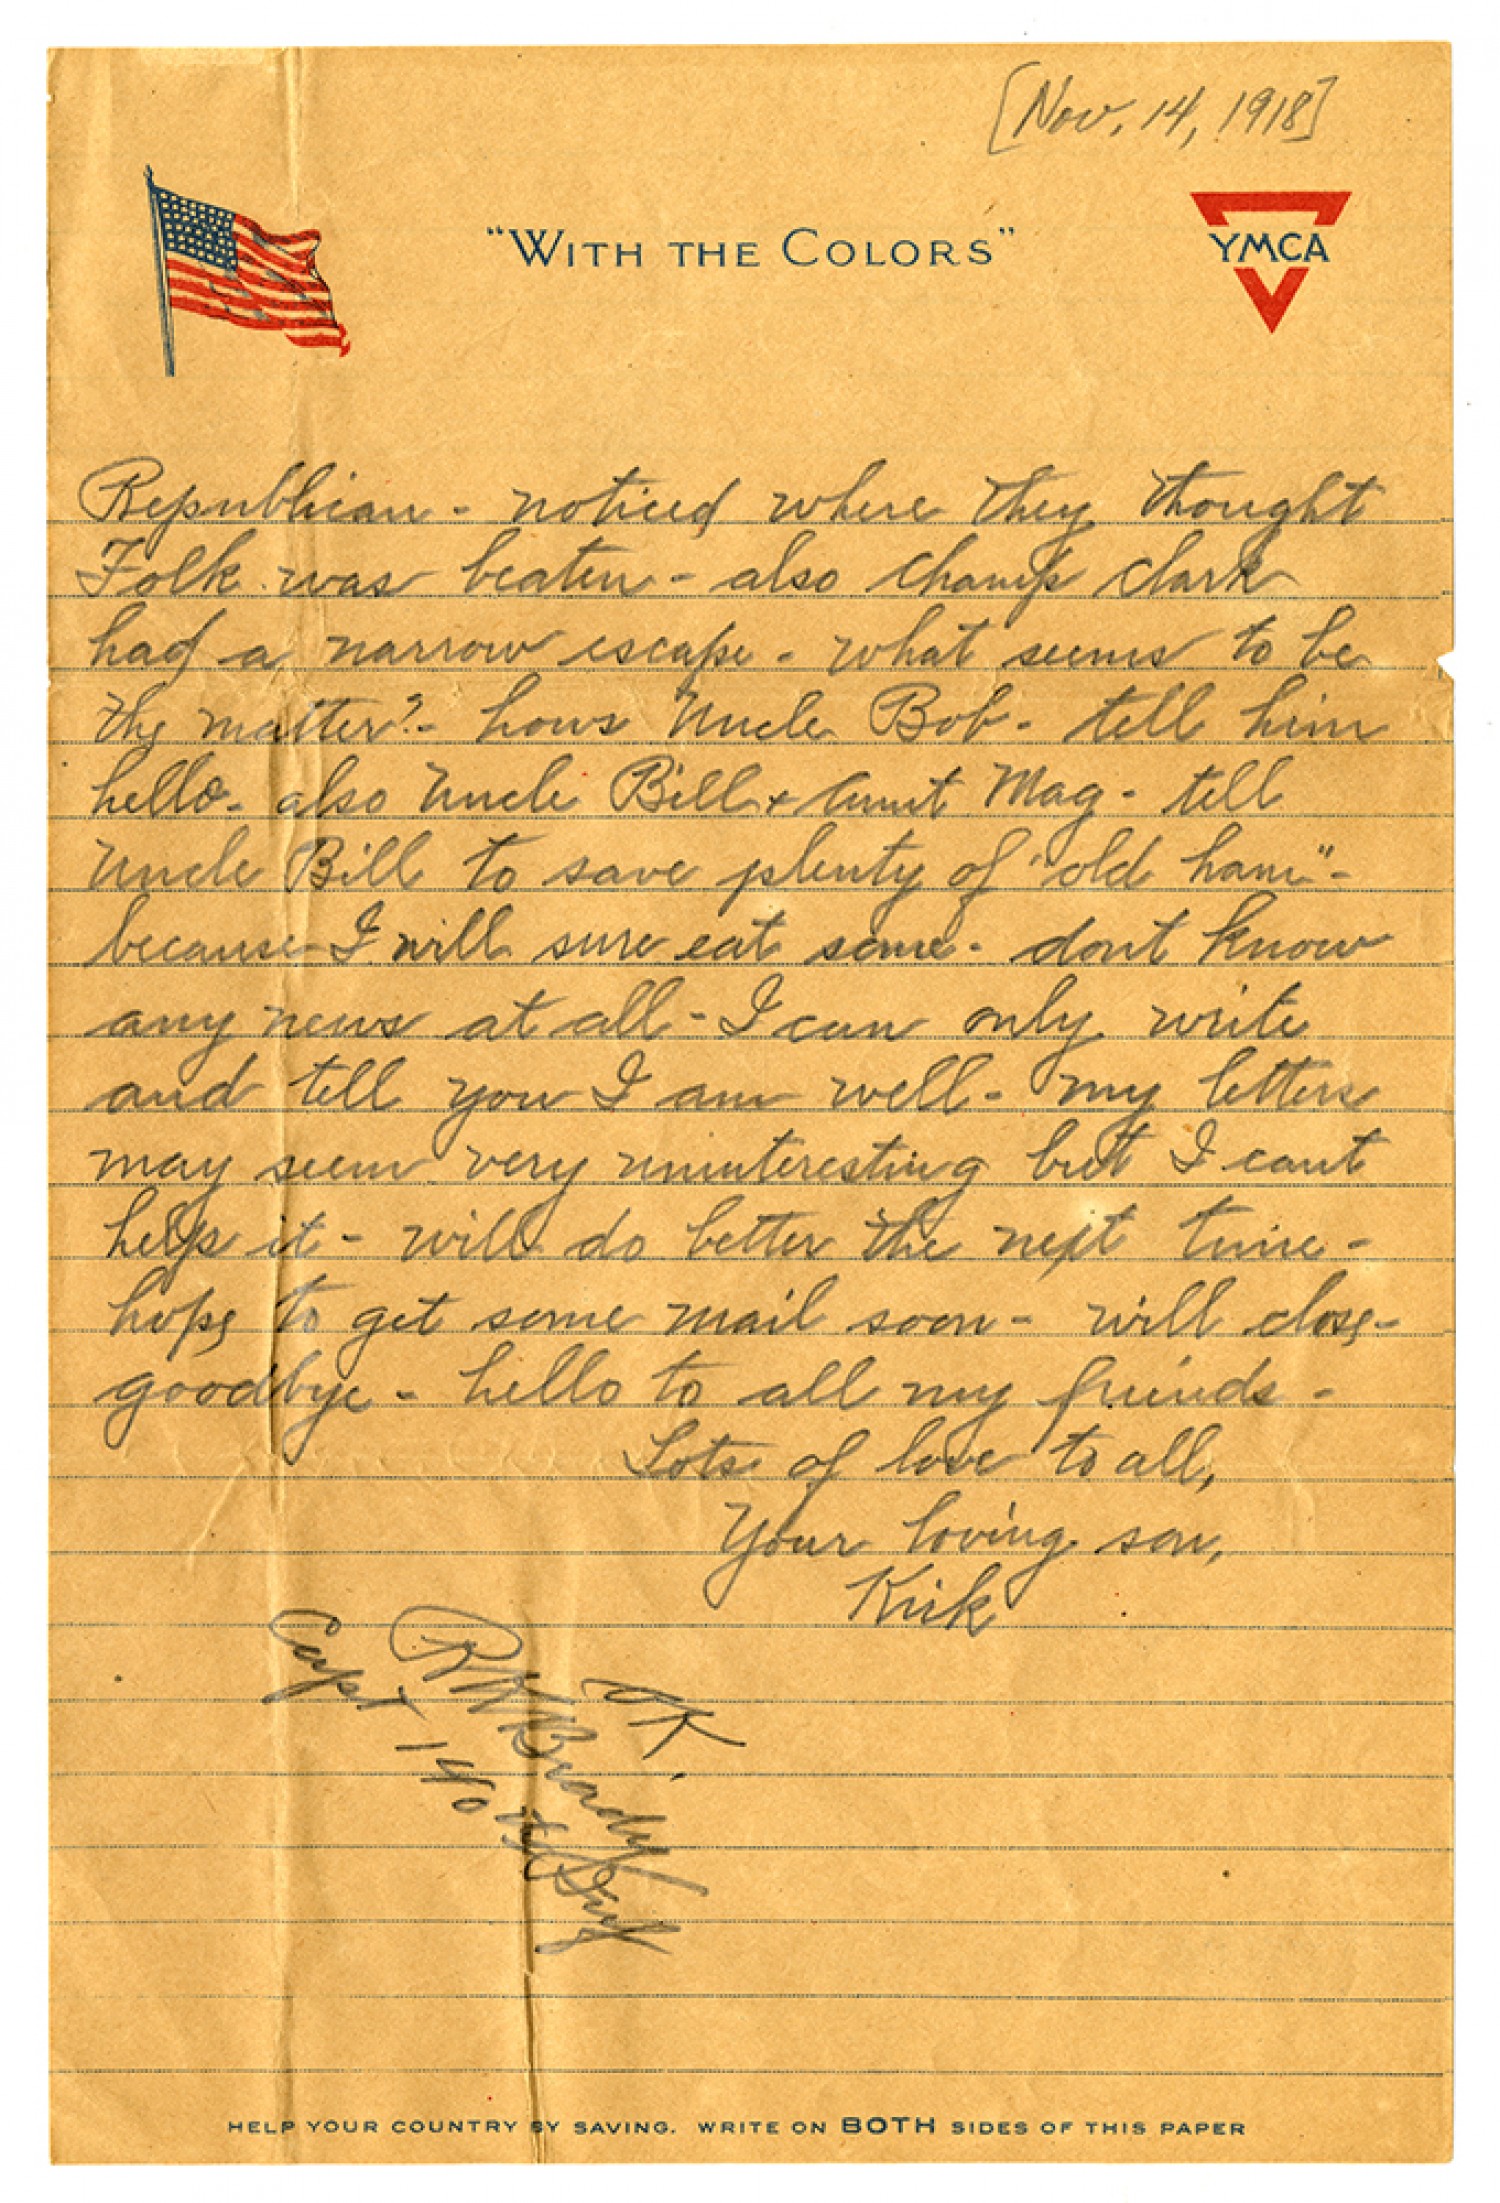 [Nov. 14, 1918]
"WITH THE COLORS"
YMCA
Republican - noticed where they thought
Folk was beaten - also Champ Clark
had a narrow escape - what seems to be
the matter? - hows Uncle Bob - tell him
hello - also Uncle Bill + Aunt Mag - tell
Uncle Bill to save plenty of "old ham" -
because I will sure eat some - dont know
any news at all - I can only write
and tell you I am well - my letters
may seem very uninteresting but I cant
help it - will do better the next time -
hope to get some mail soon - will close -
goodbye - hello to all my friends -
Lots of love to all,
Your loving son,
Kirk
OK.
R W Brady
Capt 140th Inf
HELP YOUR COUNTRY BY SAVING. WRITE ON BOTH SIDES OF THIS PAPER